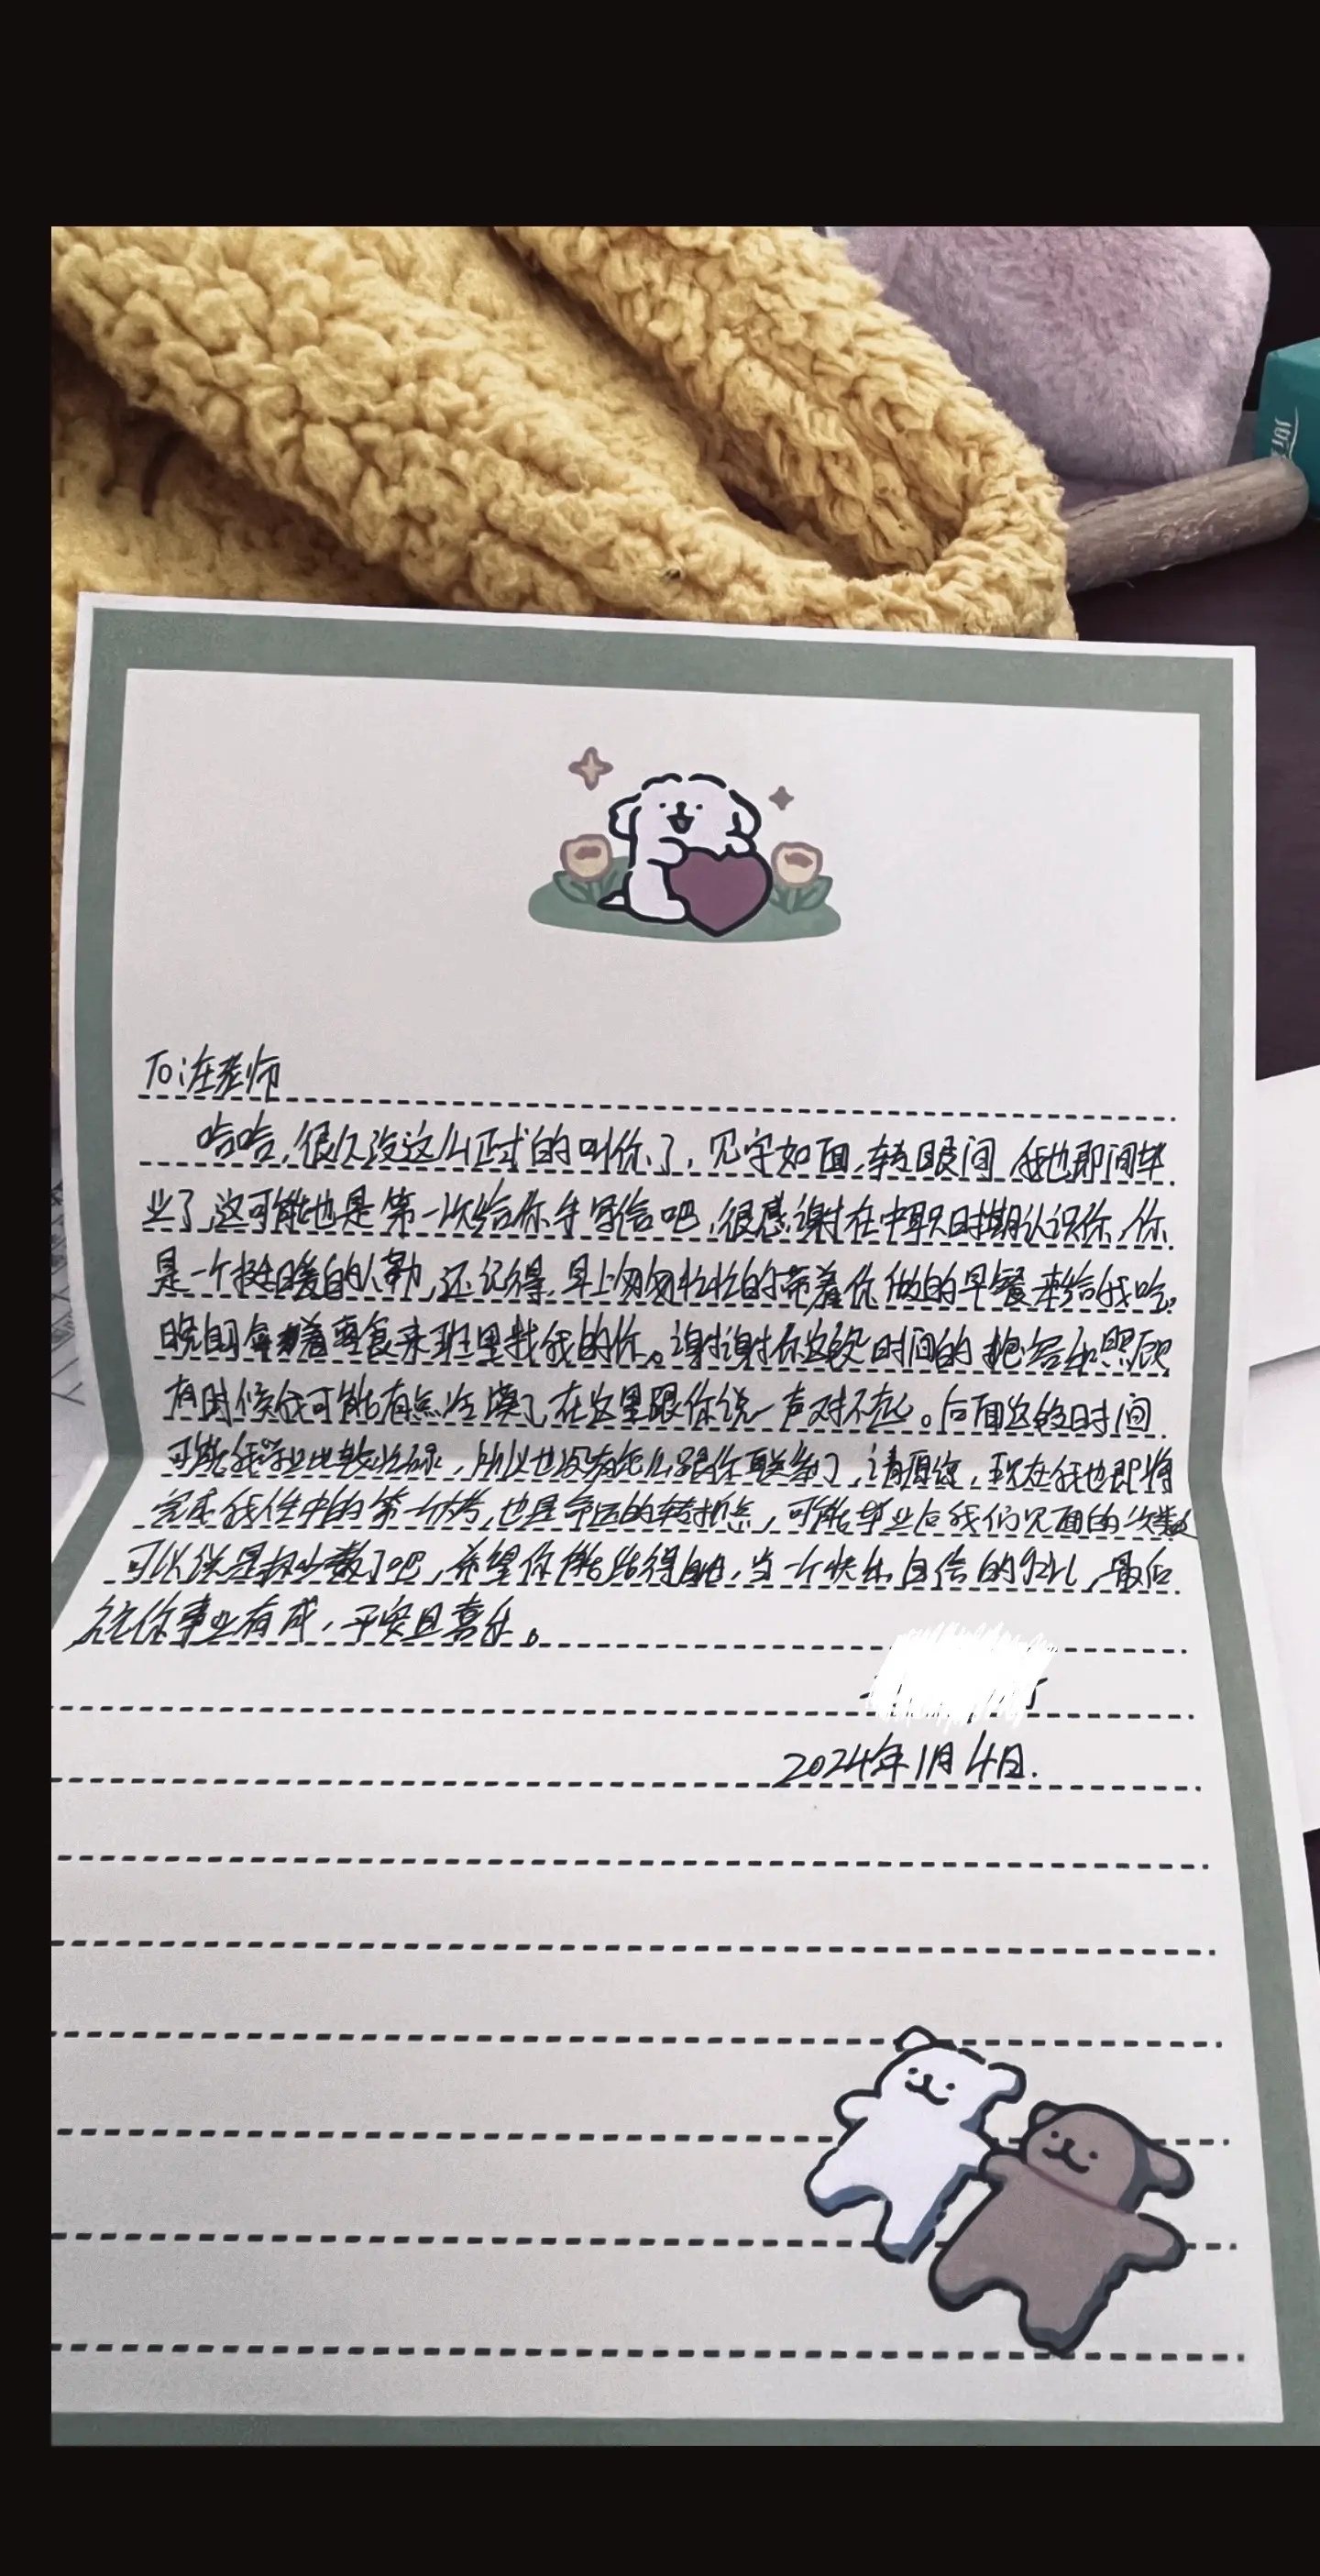 To:汪老师
哈哈,很久没这么正式的叫你了,见字如面,转眼间,我也即间毕
业了,这可能也是第一次给你手写信吧,很感谢在中职时期认识你,你
是一个挺暖的人勒,还记得,早上匆匆忙忙的带着你做的早餐来给我吃,
晚自习拿着零食来班里找我的你。谢谢你这段时间的抱容和照顾
有时候我可能有点冷漠了,在这里跟你说一声对不起。后面这段时间
可能我学业比较忙碌,所以也没有怎么跟你联系了,请原谅,现在我也即将
完成我人生中的第一次高考,也是命运的转折点,可能毕业后我们见面的次数
可以说是极少数了吧,希望你能活得自由,当一个快乐自信的女孩,最后
祝你事业有成,平安且喜乐。
2024年1月4日.